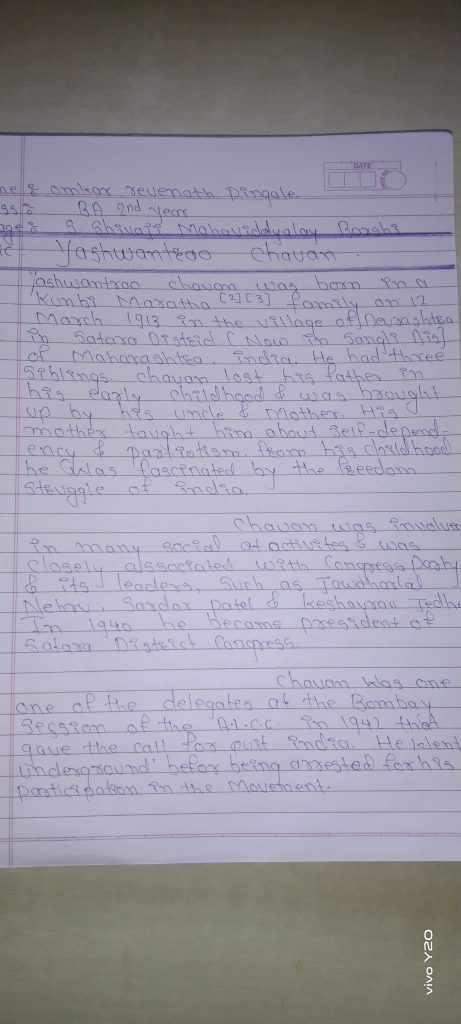 DATE
me : omkar revenath Pingale
ss : BA 2nd year
age : S. Shivaji Mahaviddyalay Barshi
ic Yashwantrao Chavan
Yashwantrao chavan was born in a
Kunbi Maratha [2][3] family on 12
March 1913 in the village of Devrashtra
in Satara Distrid (Now in Sangli Dis]
of Maharashtra, india. He had three
Siblings chavan lost his father in
his early childhood & was brought
up by his uncle & Mother. His
mother taught him about self-depend-
ency & partiotism. from his childhood
he was fascinated by the freedom
struggle of india.
Chavan was involve
in many social at activites & was
closely associated with Congress Party
& its leaders, Such as Jawaharlal
Nehru, Sardar patel & keshavrav Jedhe
In 1940 he became president of
Satara District Congress.
Chavan was one
one of the delegates at the Bombay
Session of the A.I.C.C. in 1942 that
gave the call for quit india. He went
underground' befor being arrested for his
participation in the Movement.
vivo Y20